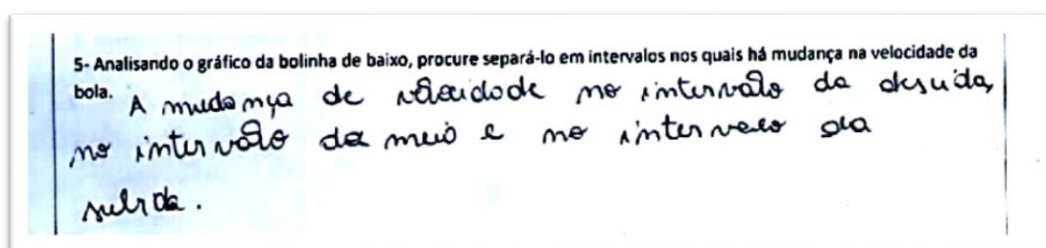 5- Analisando o gráfico da bolinha de baixo, procure separá-lo em intervalos nos quais há mudança na velocidade da
bola. A mudança de velocidade no intervalo da descida,
no intervalo da meio e no intervalo da
subida.